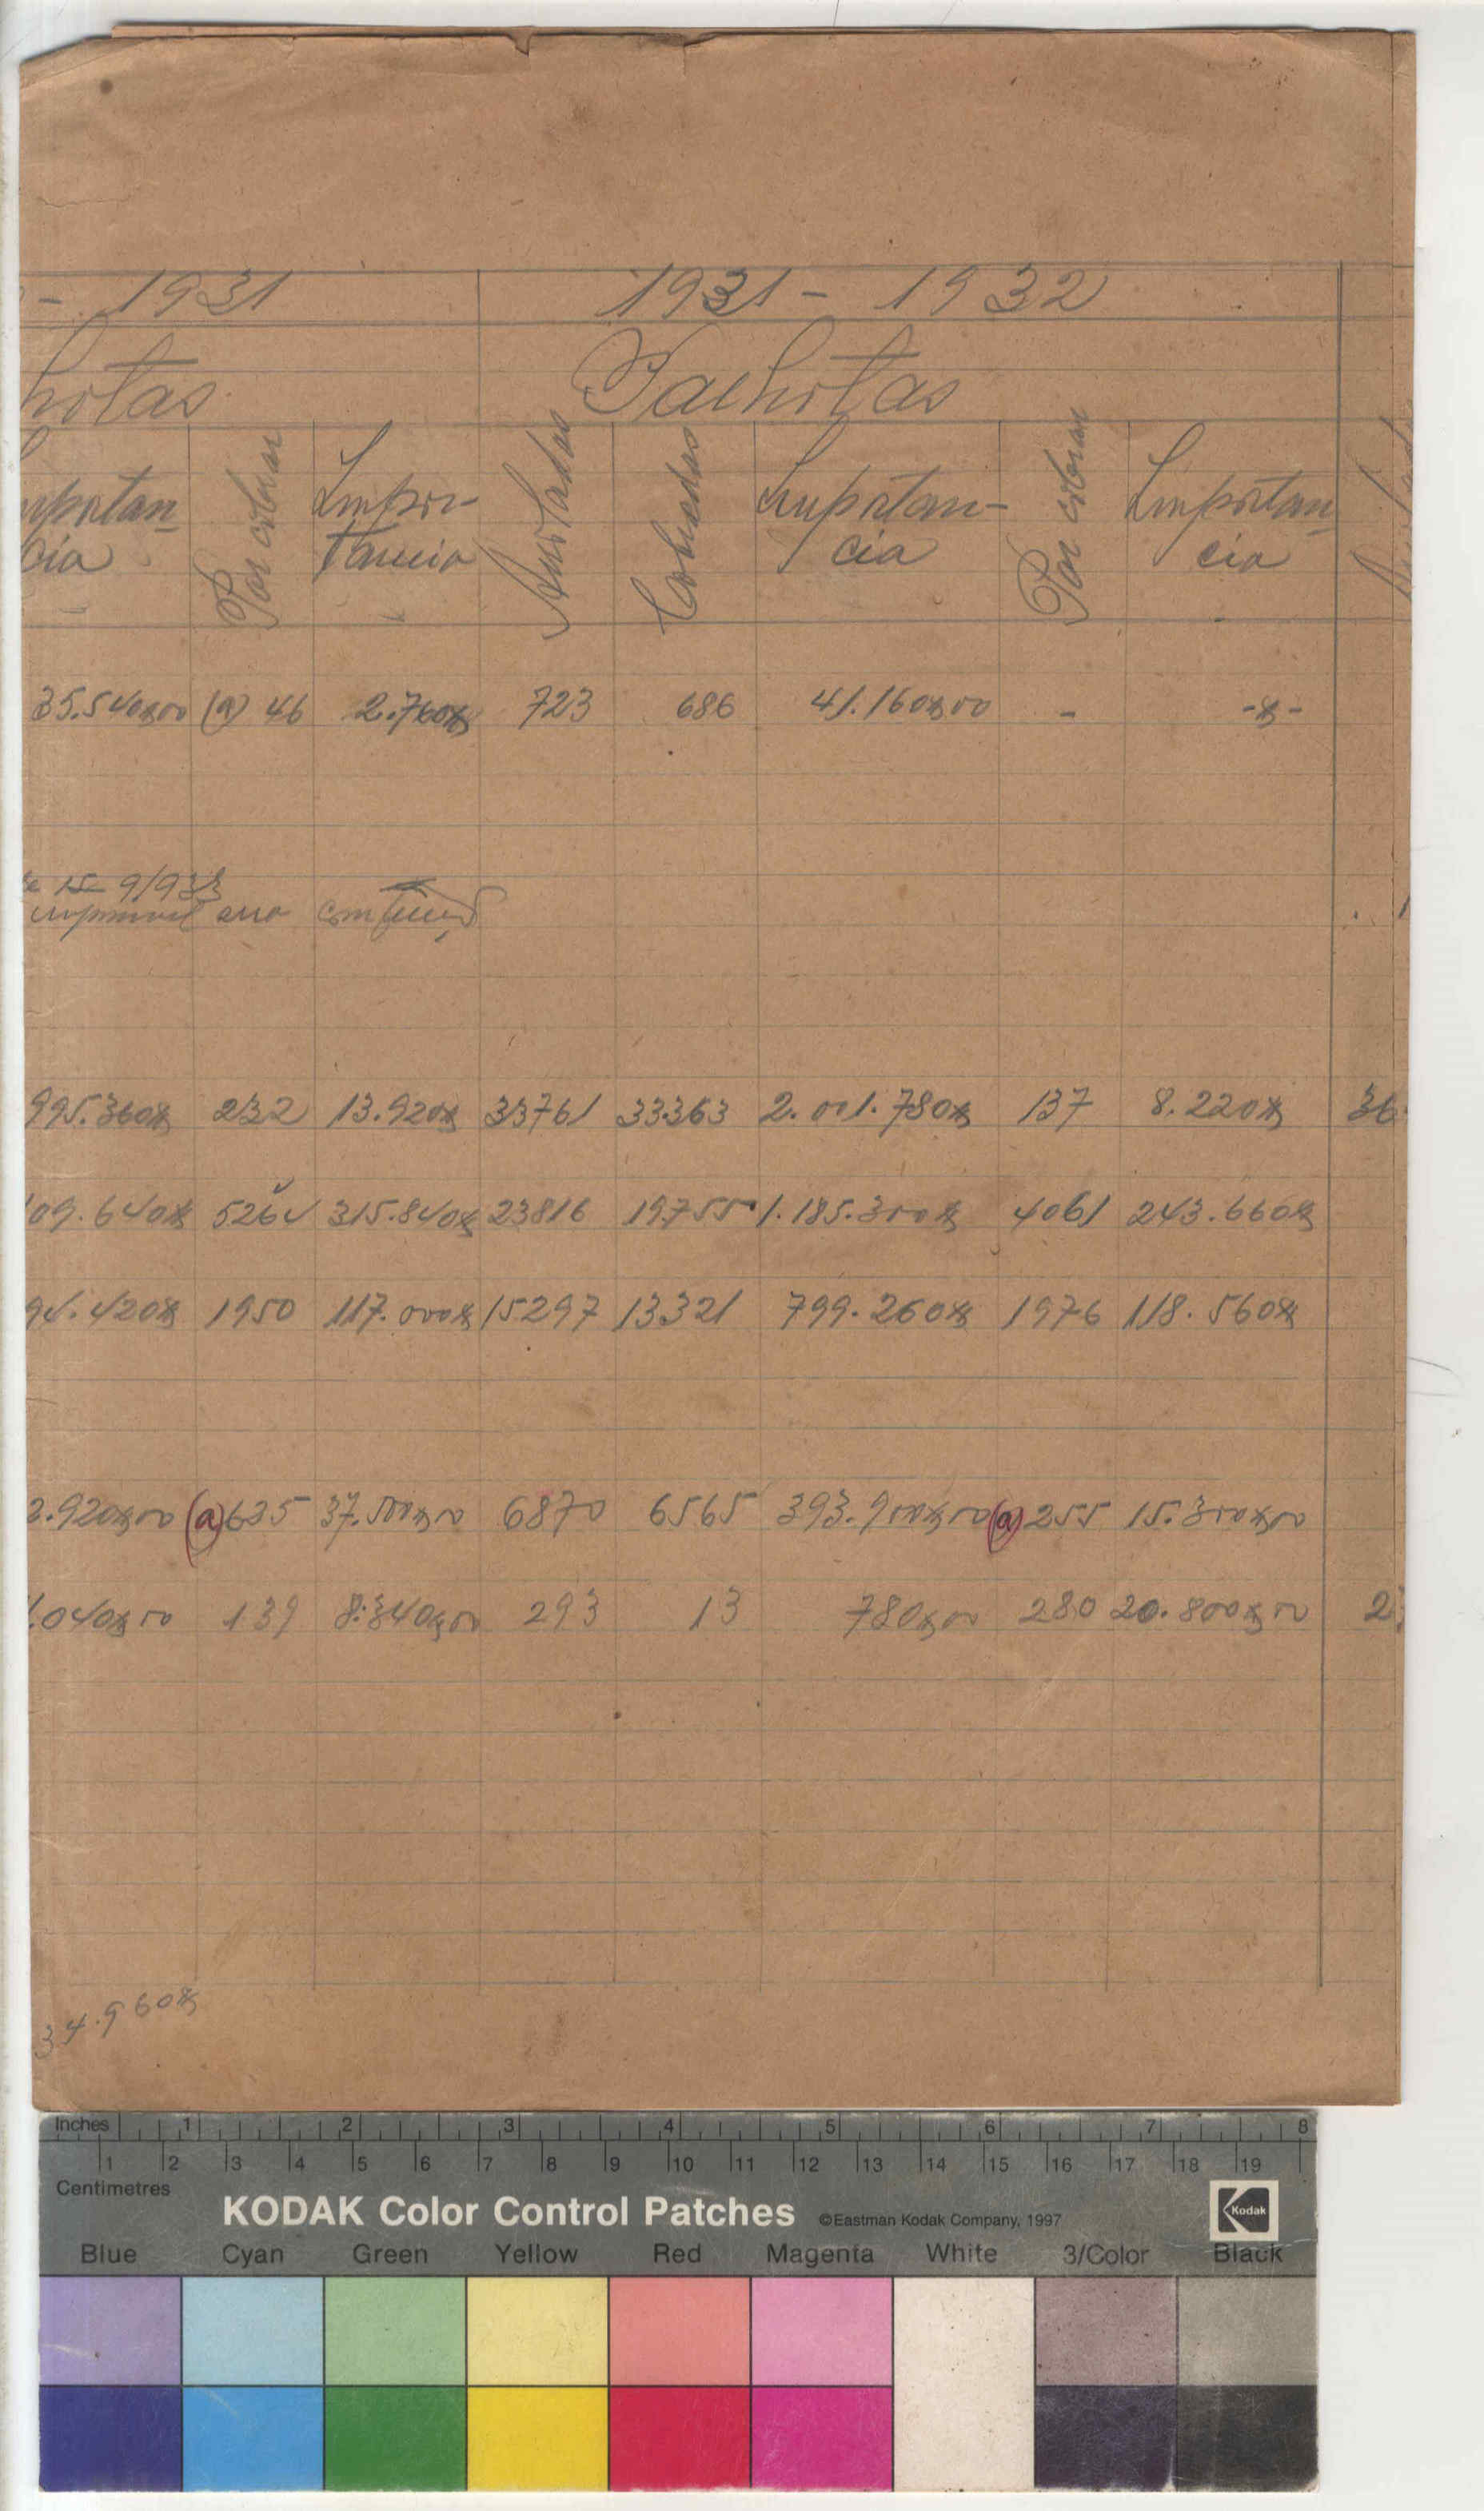 - 1931 1931 - 1932
hotas Palhotas
mportan Por cobrar Impor- Arroladas Cobradas Importan- Por cobrar Importan
cia tancia cia cia
35.540$00 (a) 46 2.760$ 723 686 41.160$00 - -$-
15 9/933
995.360$ 232 13.920$ 33761 33363 2.001.780$ 137 8.220$ 36
09.640$ 5264 315.840$ 23816 19755 1.185.300$ 4061 243.660$
94.420$ 1950 117.000$ 15297 13321 799.260$ 1976 118.560$
2.920$00 (a) 625 37.500$00 6870 6565 393.900$00 (a) 255 15.300$00
1.040$00 139 8.340$00 293 13 780$00 280 20.800$00 2
34.960$
Inches 1 2 3 4 5 6 7 8
1 2 3 4 5 6 7 8 9 10 11 12 13 14 15 16 17 18 19
Centimetres
KODAK Color Control Patches ©Eastman Kodak Company, 1997 Kodak
Blue Cyan Green Yellow Red Magenta White 3/Color Black